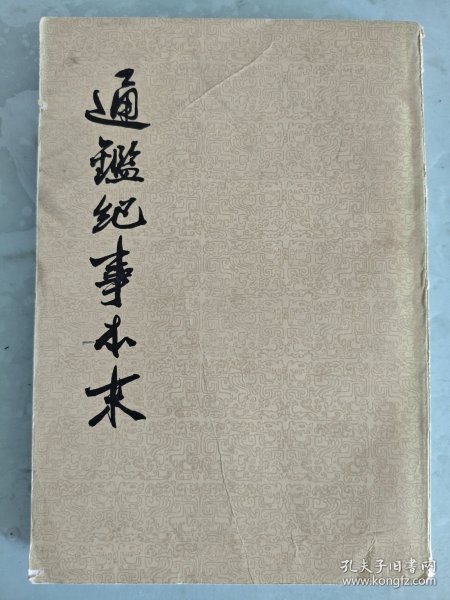 通鑑紀事本末
孔夫子旧书网
www.kongfz.com